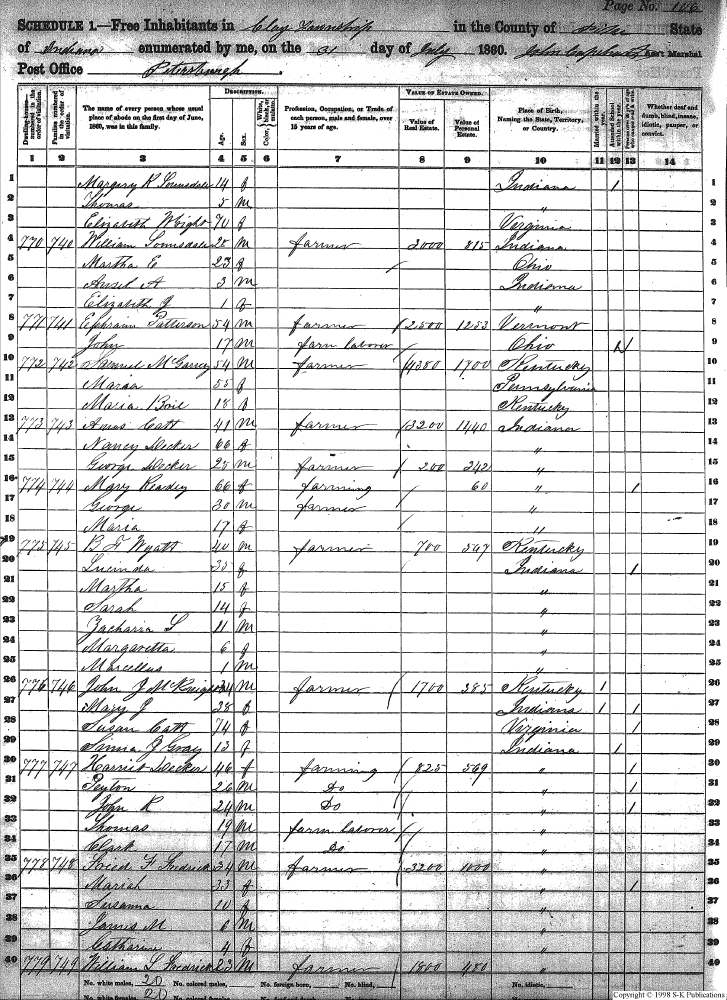 Page No. 106
SCHEDULE 1.—Free Inhabitants in Clay Township in the County of Pike State
of Indiana enumerated by me, on the 31 day of July 1860. Ass't Marshal
Post Office Petersburgh
DESCRIPTION. VALUE OF ESTATE OWNED.
Dwelling-houses numbered in the order of visitation. Families numbered in the order of visitation. The name of every person whose usual place of abode on the first day of June, 1860, was in this family. Age. Sex. Color, White, black, or mulatto. Profession, Occupation, or Trade of each person, male and female, over 15 years of age. Value of Real Estate. Value of Personal Estate. Place of Birth, Naming the State, Territory, or Country. Married within the year. Attended School within the year. Whether deaf and dumb, blind, insane, idiotic, pauper, or convict.
1 2 3 4 5 6 7 8 9 10 11 12 13 14
1 Margery R Lounsdale 14 f Indiana / 1
2 Thomas 5 m " 2
3 Elizabeth Wright 70 f Virginia 3
4 770 740 William Lounsdale 28 m farmer 2000 815 Indiana 4
5 Martha E 23 f Ohio 5
6 Ansel A 3 m Indiana 6
7 Elizabeth J 1 f " 7
8 771 741 Ephraim Patterson 54 m farmer 2500 1253 Vermont 8
9 John 17 m farm laborer Ohio 9
10 772 742 Samuel McGarrey 54 m farmer 4380 1700 Kentucky 10
11 Maria 55 f Pennsylvania 11
12 Maria Boil 18 f Kentucky 12
13 773 743 Amos Catt 41 m farmer 3200 1440 Indiana 13
14 Nancy Decker 66 f " 14
15 George Decker 25 m farmer 200 242 " 15
16 774 744 Mary Readey 66 f farming 60 " / 16
17 George 30 m farmer " 17
18 Maria 17 f " 18
19 775 745 B F Wyatt 40 m farmer 700 567 Kentucky 19
20 Lucinda 35 f Indiana / 20
21 Martha 15 f " 21
22 Sarah 14 f " 22
23 Zacharia L 11 m " 23
24 Margaretta 6 f " 24
25 Marcellus 1 m " 25
26 776 746 John J McKnight 34 m farmer 1700 385 Kentucky 1 26
27 Mary J 28 f Indiana 1 / 27
28 Susan Catt 74 f Virginia / 28
29 Gray 13 f Indiana / 29
30 777 747 Harriet Decker 46 f farming 825 569 " / 30
31 Peyton 26 m Do " / 31
32 John R 24 m Do " / 32
33 Thomas 19 m farm laborer " 33
34 Clark 17 m Do " 34
35 778 748 Fredrick 34 m farmer 3200 1000 " 35
36 Mariah 33 f " / 36
37 Susanna 10 f " 37
38 James M 6 m " 38
39 Catharine 4 f " 39
40 779 749 William L Fredrick 23 m farmer 1800 480 " 40
No. white males, 20 No. colored males, No. foreign born, No. blind, No. idiotic,
No. white females, 20 No. colored females,
Copyright © 1998 S-K Publications